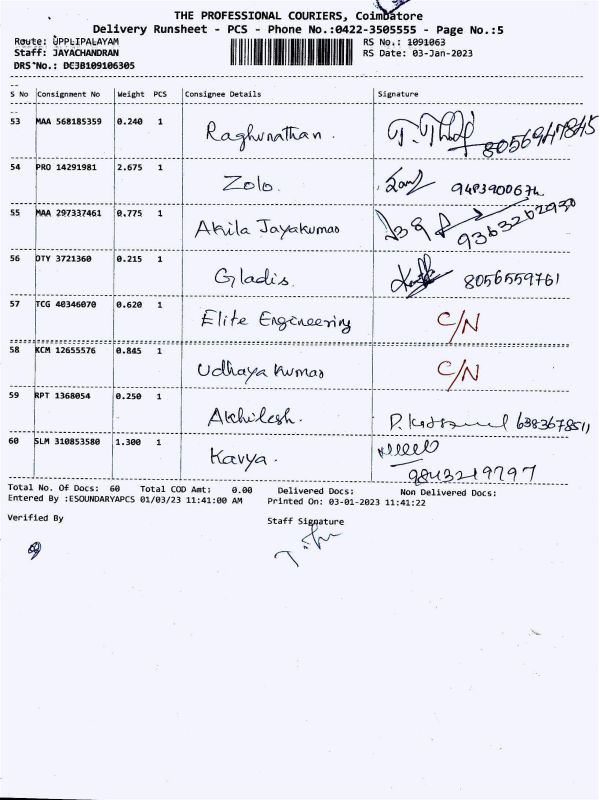 THE PROFESSIONAL COURIERS, Coimbatore
Delivery Runsheet - PCS - Phone No.:0422-3505555 - Page No.:5
Route: UPPLIPALAYAM RS No.: 1091063
Staff: JAYACHANDRAN RS Date: 03-Jan-2023
DRS No.: DC3B109106305
S No Consignment No Weight PCS Consignee Details Signature
53 MAA 568185359 0.240 1 Raghunathan. 8056947845
54 PRO 14291981 2.675 1 Zolo.
55 MAA 297337461 0.775 1 Akila Jayakumar 9363262930
56 OTY 3721360 0.215 1 Gladis. 8056559761
57 TCG 40346070 0.620 1 Elite Engineering C/N
58 KCM 12655576 0.845 1 Udhaya Kumar C/N
59 RPT 1368054 0.250 1 Akhilesh.
60 SLM 310853580 1.300 1 Kavya. 9843219797
Total No. Of Docs: 60 Total COD Amt: 0.00 Delivered Docs: Non Delivered Docs:
Entered By :ESOUNDARYAPCS 01/03/23 11:41:00 AM Printed On: 03-01-2023 11:41:22
Verified By Staff Signature